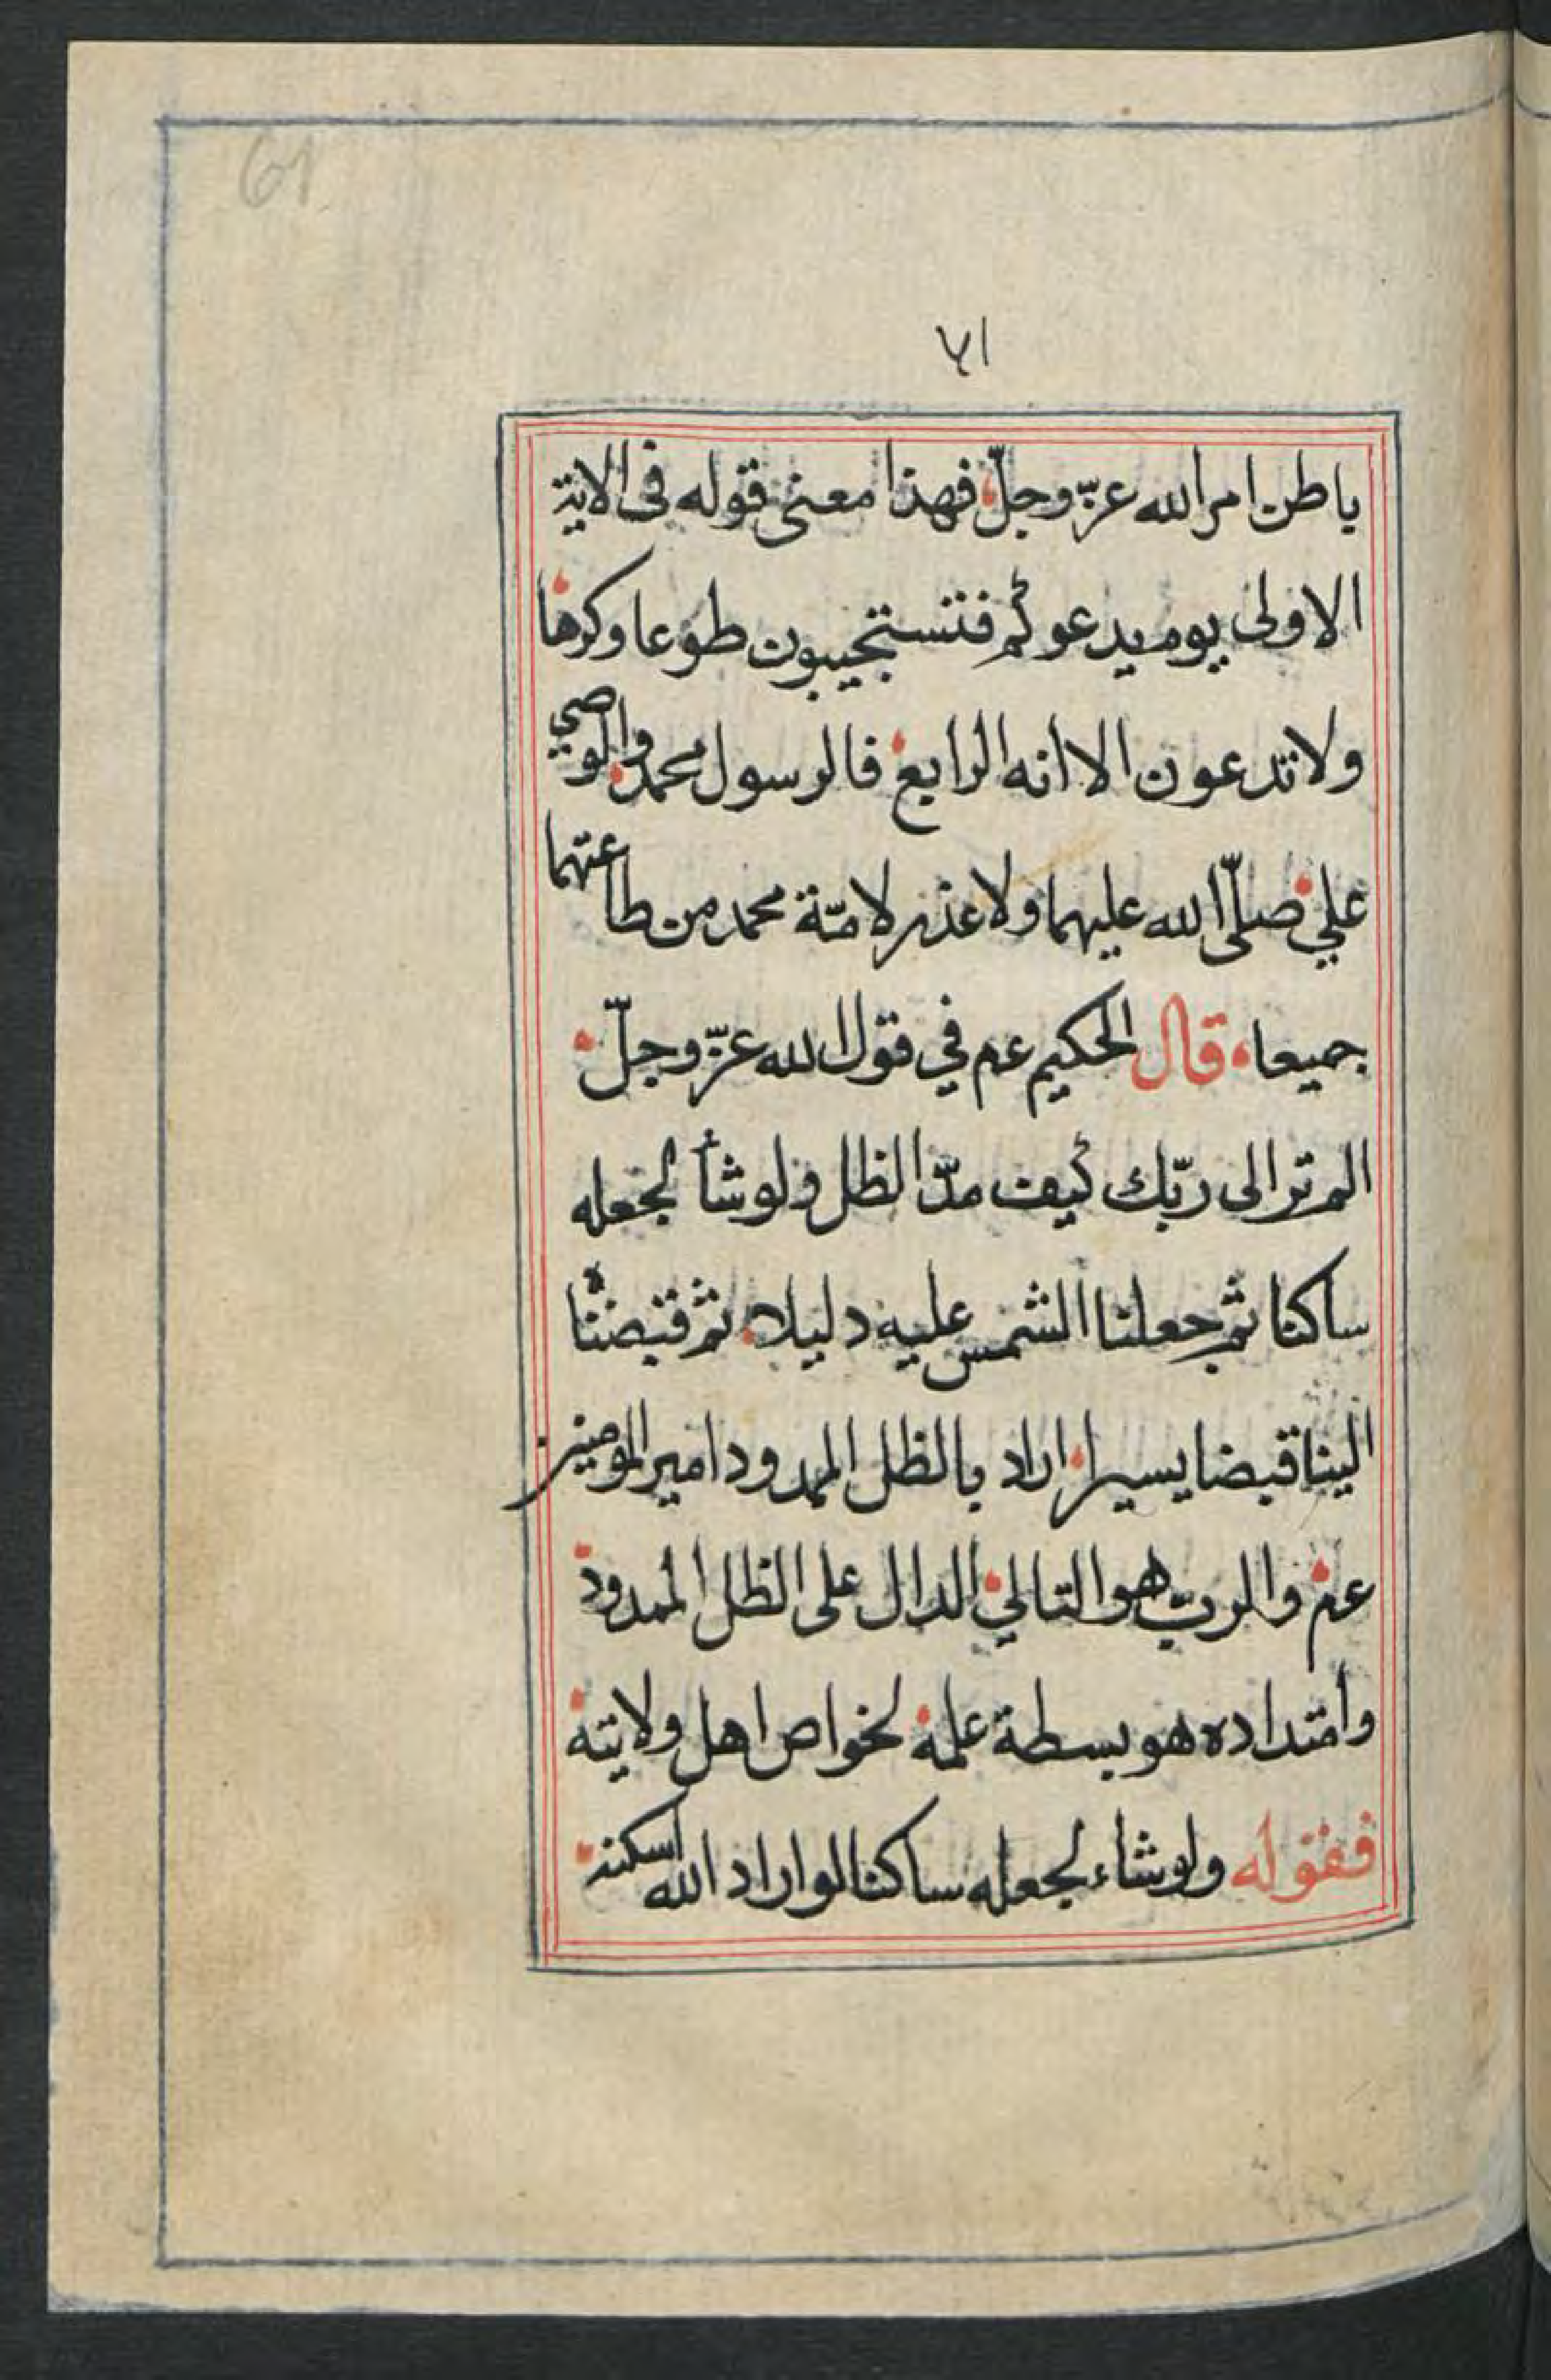 61
٦١
باطن امر الله عزّ وجلّ فهذا معنى قوله فى الاية
الاولى يوم يدعوكم فتستجيبون طوعا وكرها
ولا تدعون الا انه الرابع فالرسول محمد والوصي
علي صلّى الله عليهما ولا عذر لامّة محمد من طاعتهما
جميعا قال الحكيم عم في قول الله عزّ وجلّ
الم تر الى ربّك كيف مدّ الظل ولو شأ لجعله
ساكنا ثم جعلنا الشمس عليه دليلا ثم قبضناه
الينا قبضا يسيرا اراد بالظل الممدود امير المومنين
عم والرب هو التالي الدال على الظل الممدود
وامتداده هو بسطة علمه لخواص اهل ولايته
فقوله ولو شاء لجعله ساكنا لو اراد الله اسكنه